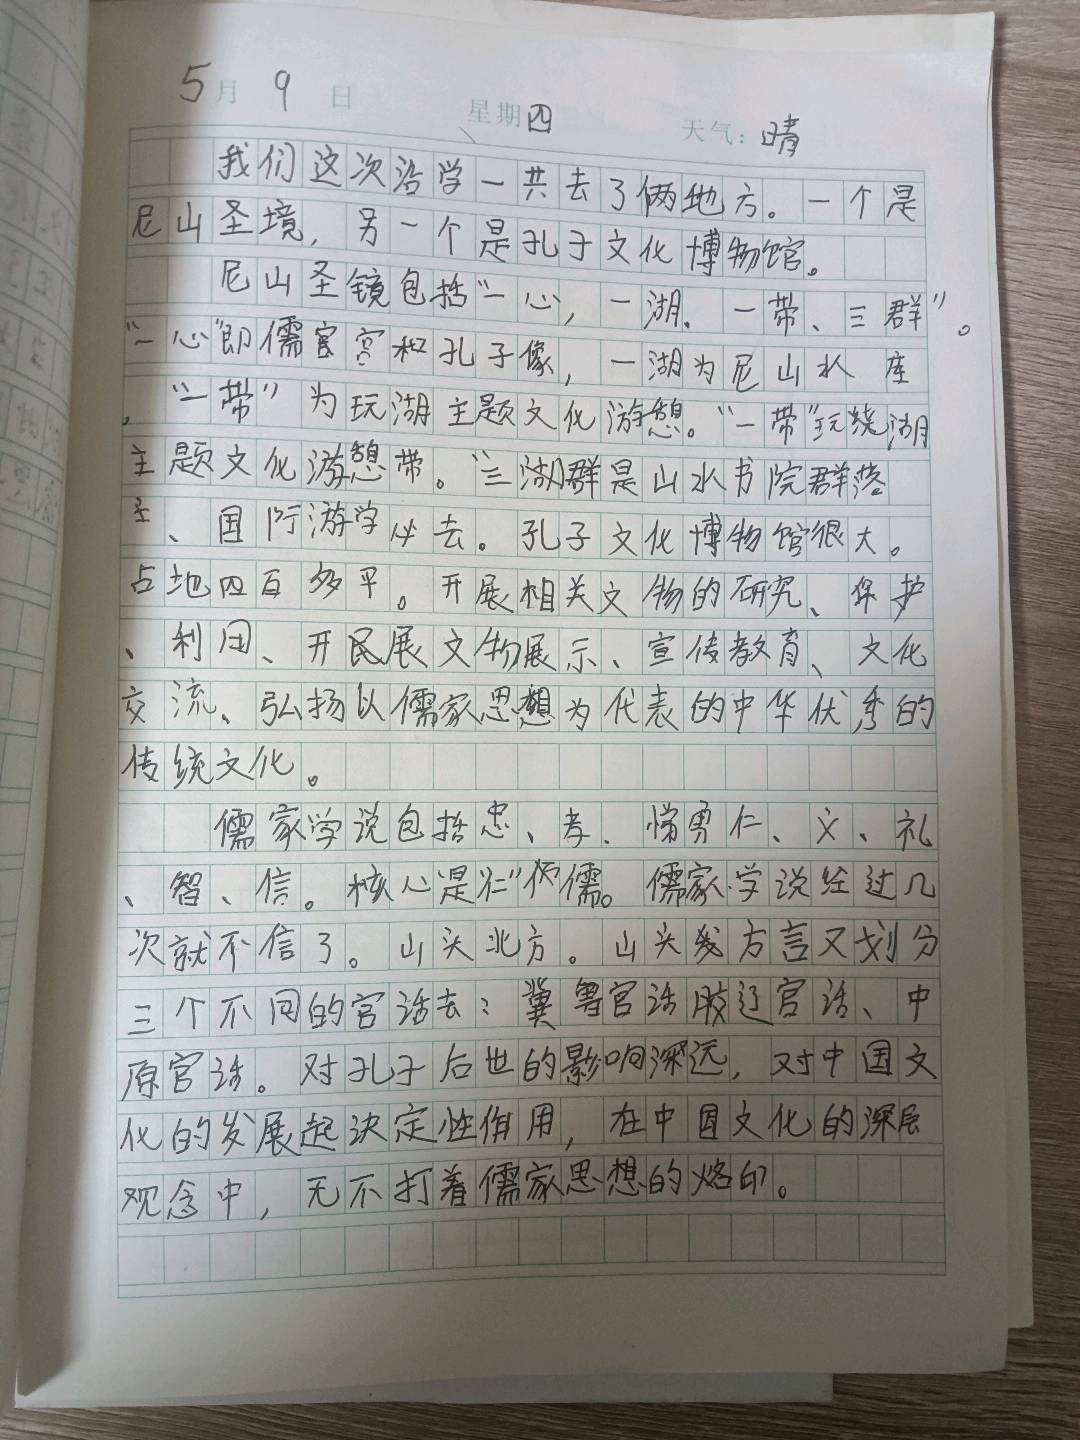 5月 9日 星期四 天气：晴
我们这次沿学一共去了俩地方。一个是
尼山圣境，另一个是孔子文化博物馆。
尼山圣镜包括“一心，一湖、一带、三群”。
“一心”即儒宫宫和孔子像，一湖为尼山水库
，“一带”为玩湖主题文化游憩。“一带”玩绕湖
主题文化游憩带。“三湖群是山水书院群落
、国际游学必去。孔子文化博物馆很大。
占地四百多平。开展相关文物的研究、保护
、利用、开民展文物展示、宣传教育、文化
交流、弘扬以儒家思想为代表的中华优秀的
传统文化。
儒家学说包括忠、孝、悌勇仁、义、礼
、智、信。核心是“仁”儒。儒家学说经过几
次就不信了。山头北方。山头方言又划分
三个不同的官话去：冀鲁官话胶辽官话、中
原官话。对孔子后世的影响深远，对中国文
化的发展起决定性作用，在中国文化的深层
观念中，无不打着儒家思想的烙印。